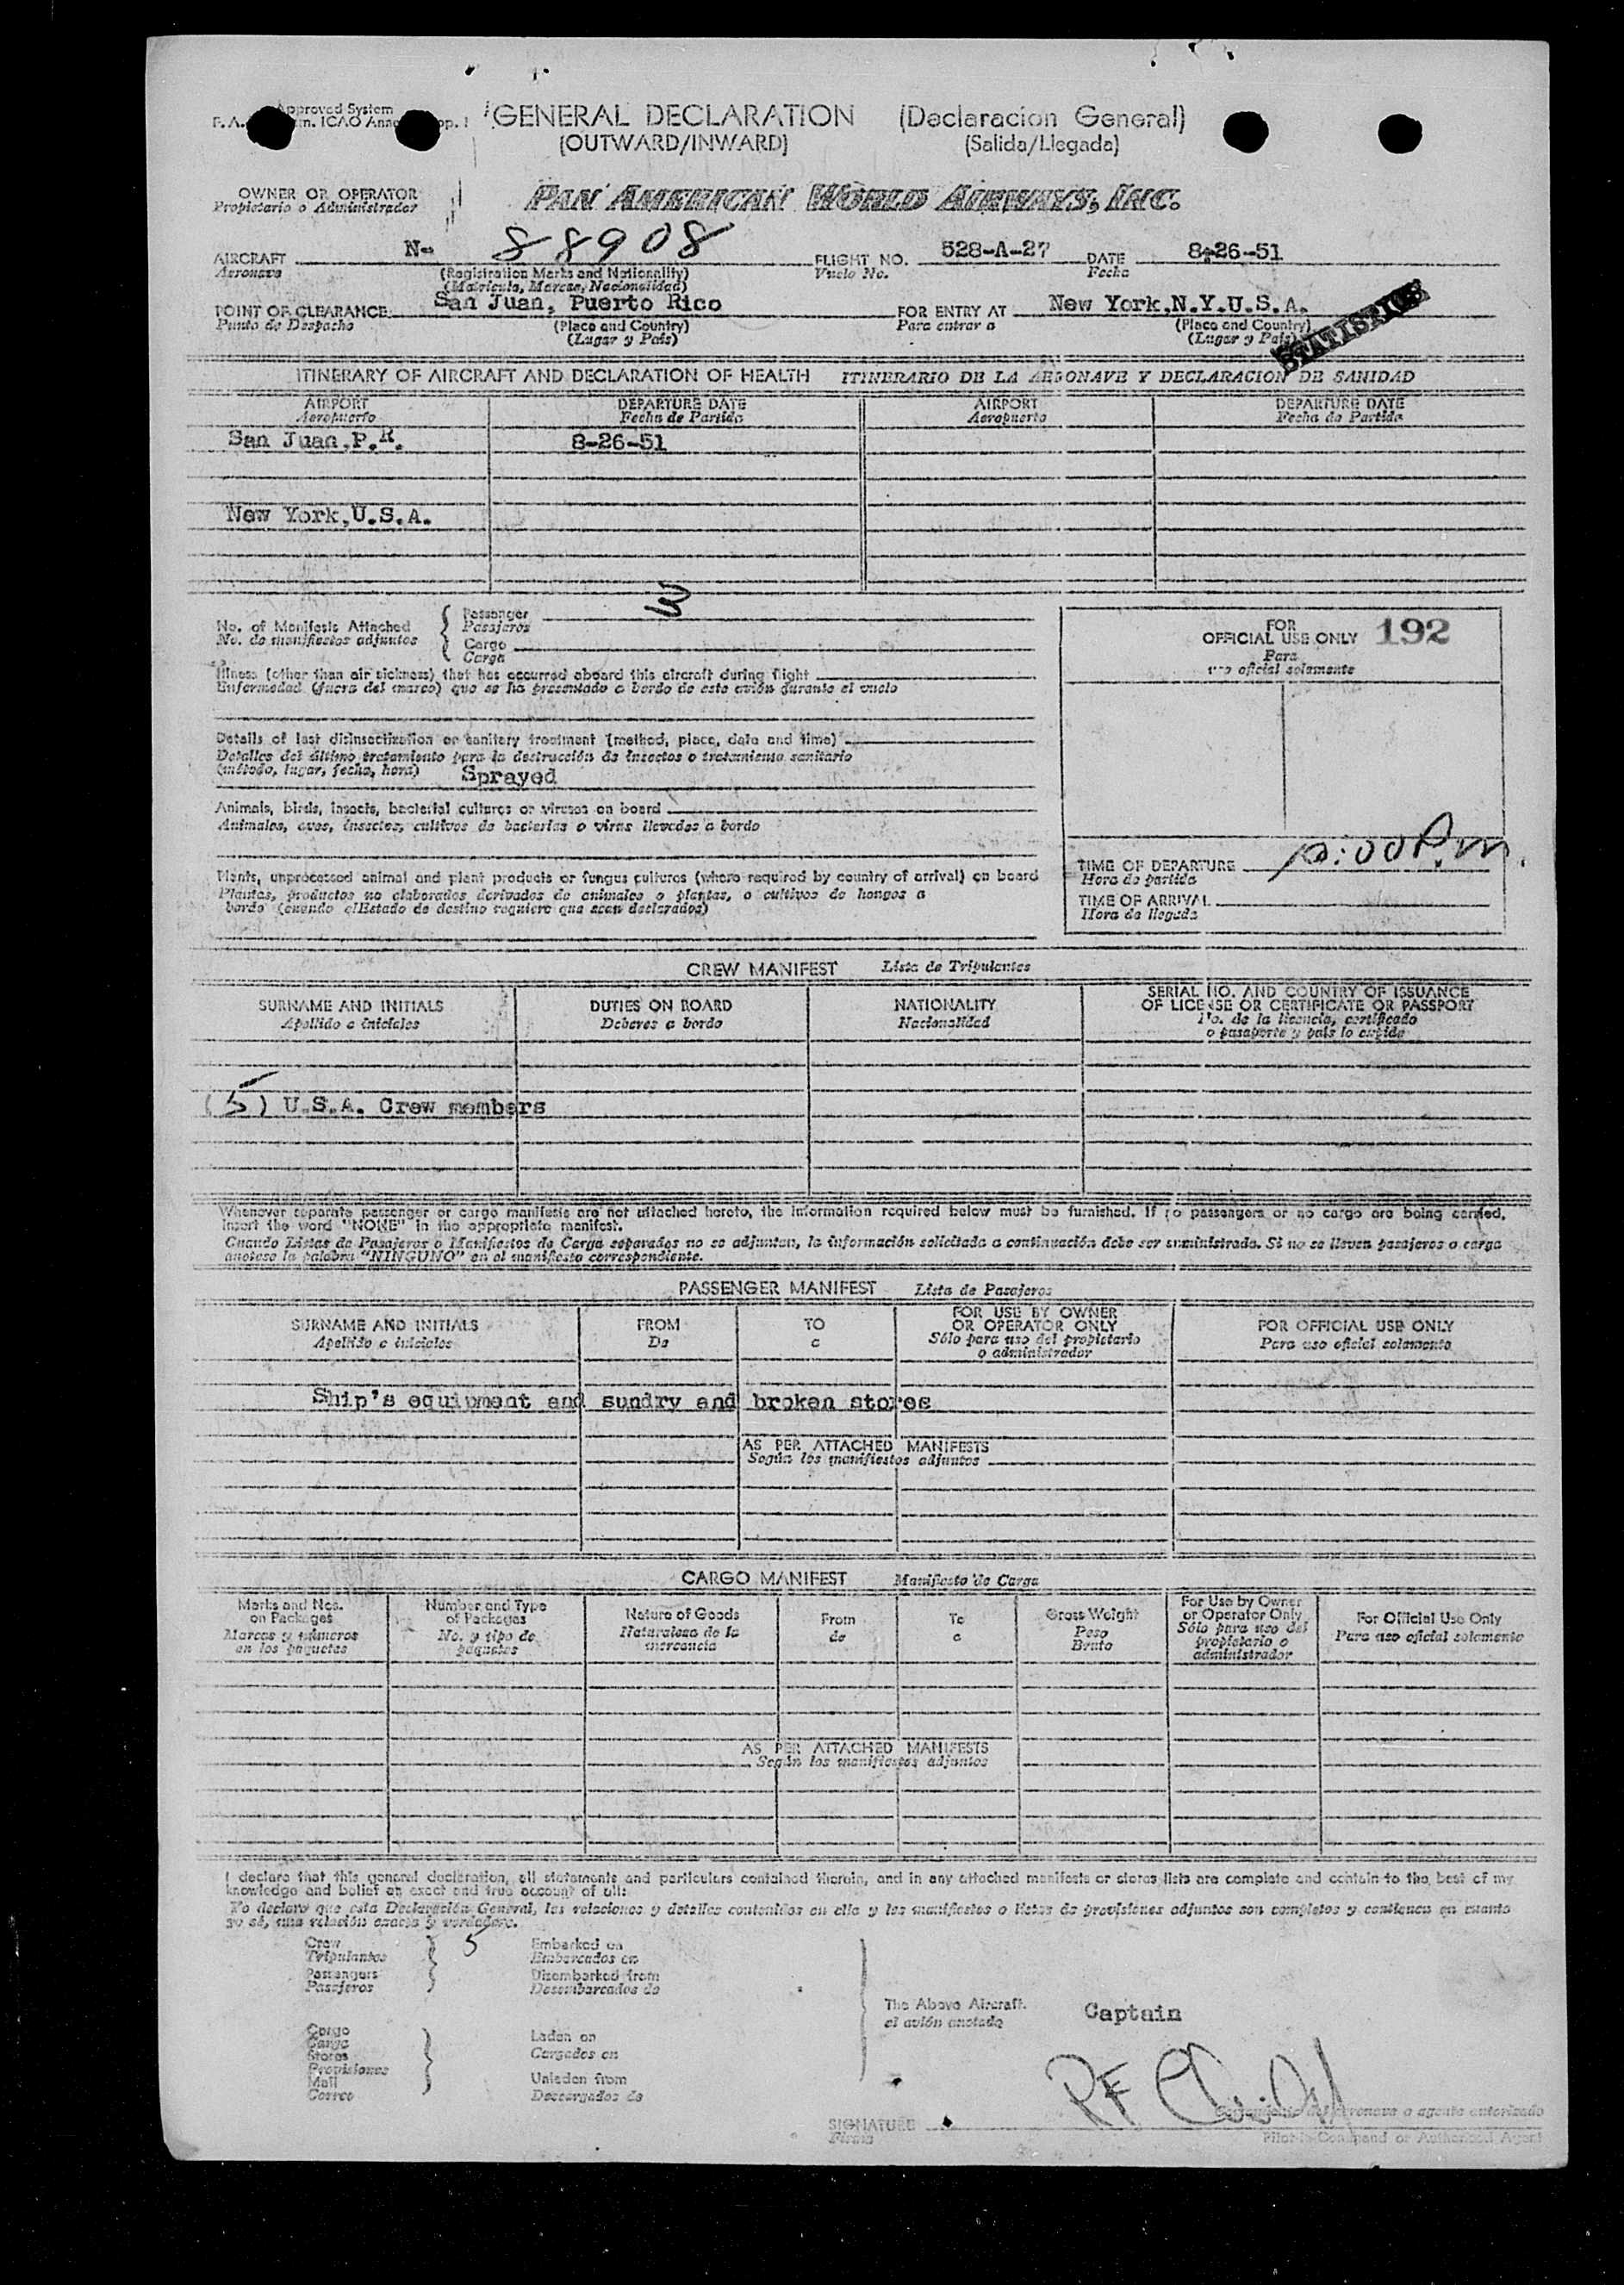 Approved System
GENERAL DECLARATION (Declaracion General)
(OUTWARD/INWARD) (Salida/Llegada)
OWNER OR OPERATOR
Propietario o Administrador
PAN AMERICAN WORLD AIRWAYS, INC.
AIRCRAFT N- 88908 FLIGHT NO. 528-A-27 DATE 8-26-51
Aeronave (Registration Marks and Nationality) Vuelo No. Fecha
(Matricula, Marcas, Nacionalidad)
POINT OF CLEARANCE San Juan, Puerto Rico FOR ENTRY AT New York,N.Y.U.S.A.
Punto de Despacho (Place and Country) Para entrar a (Place and Country)
(Lugar y País) (Lugar y País)
STATISTICS
ITINERARY OF AIRCRAFT AND DECLARATION OF HEALTH ITINERARIO DE LA AERONAVE Y DECLARACION DE SANIDAD
AIRPORT DEPARTURE DATE AIRPORT DEPARTURE DATE
Aeropuerto Fecha de Partida Aeropuerto Fecha de Partida
San Juan,P.R. 8-26-51
New York,U.S.A.
No. of Manifests Attached Passenger 3
No. de manifiestos adjuntos Pasajeros
Cargo
Carga
Illness (other than air sickness) that has occurred aboard this aircraft during flight
Enfermedad (fuera del mareo) que se ha presentado a bordo de este avión durante el vuelo
Details of last disinsectization or sanitary treatment (method, place, date and time)
Detalles del último tratamiento para la destrucción de insectos o tratamiento sanitario
(método, lugar, fecha, hora) Sprayed
Animals, birds, insects, bacterial cultures or viruses on board
Animales, aves, insectos, cultivos de bacterias o virus llevados a bordo
Plants, unprocessed animal and plant products or fungus cultures (where required by country of arrival) on board
Plantas, productos no elaborados derivados de animales o plantas, o cultivos de hongos a
bordo (cuando el Estado de destino requiere que sean declarados)
FOR
OFFICIAL USE ONLY 192
Para
uso oficial solamente
TIME OF DEPARTURE 10:00 P.m.
Hora de partida
TIME OF ARRIVAL
Hora de llegada
CREW MANIFEST Lista de Tripulantes
SURNAME AND INITIALS DUTIES ON BOARD NATIONALITY SERIAL NO. AND COUNTRY OF ISSUANCE
OF LICENSE OR CERTIFICATE OR PASSPORT
Apellido e iniciales Deberes a bordo Nacionalidad No. de la licencia, certificado
o pasaporte y país lo expide
(5) U.S.A. Crew members
Whenever separate passenger or cargo manifests are not attached hereto, the information required below must be furnished. If no passengers or no cargo are being carried,
insert the word "NONE" in the appropriate manifest.
Cuando Listas de Pasajeros o Manifiestos de Carga separados no se adjuntan, la información solicitada a continuación debe ser suministrada. Si no se llevan pasajeros o carga
anótese la palabra "NINGUNO" en el manifiesto correspondiente.
PASSENGER MANIFEST Lista de Pasajeros
SURNAME AND INITIALS FROM TO FOR USE BY OWNER
OR OPERATOR ONLY FOR OFFICIAL USE ONLY
Apellido e iniciales De a Sólo para uso del propietario
o administrador Para uso oficial solamente
Ship's equipment and sundry and broken stores
AS PER ATTACHED MANIFESTS
Según los manifiestos adjuntos
CARGO MANIFEST Manifiesto de Carga
Marks and Nos.
on Packages
Marcas y números
en los paquetes
Number and Type
of Packages
No. y tipo de
paquetes
Nature of Goods
Naturaleza de la
mercancía
From
de
To
a
Gross Weight
Peso
Bruto
For Use by Owner
or Operator Only
Sólo para uso del
propietario o
administrador
For Official Use Only
Para uso oficial solamente
AS PER ATTACHED MANIFESTS
Según los manifiestos adjuntos
I declare that this general declaration, all statements and particulars contained therein, and in any attached manifests or stores lists are complete and contain to the best of my
knowledge and belief an exact and true account of all:
Yo declaro que esta Declaración General, las relaciones y detalles contenidos en ella y los manifiestos o listas de provisiones adjuntos son completos y contienen en cuanto
yo sé, una relación exacta y verdadera.
Crew 5 Embarked on
Tripulantes Embarcados en
Passengers Disembarked from
Pasajeros Desembarcados de
The Above Aircraft.
el avión anotado
Captain
Cargo
Carga
Stores Laden on
Provisiones Cargados en
Mail Unladen from
Correo Descargados de
SIGNATURE
Firma
aeronave o agente autorizado
Pilot in Command or Authorized Agent